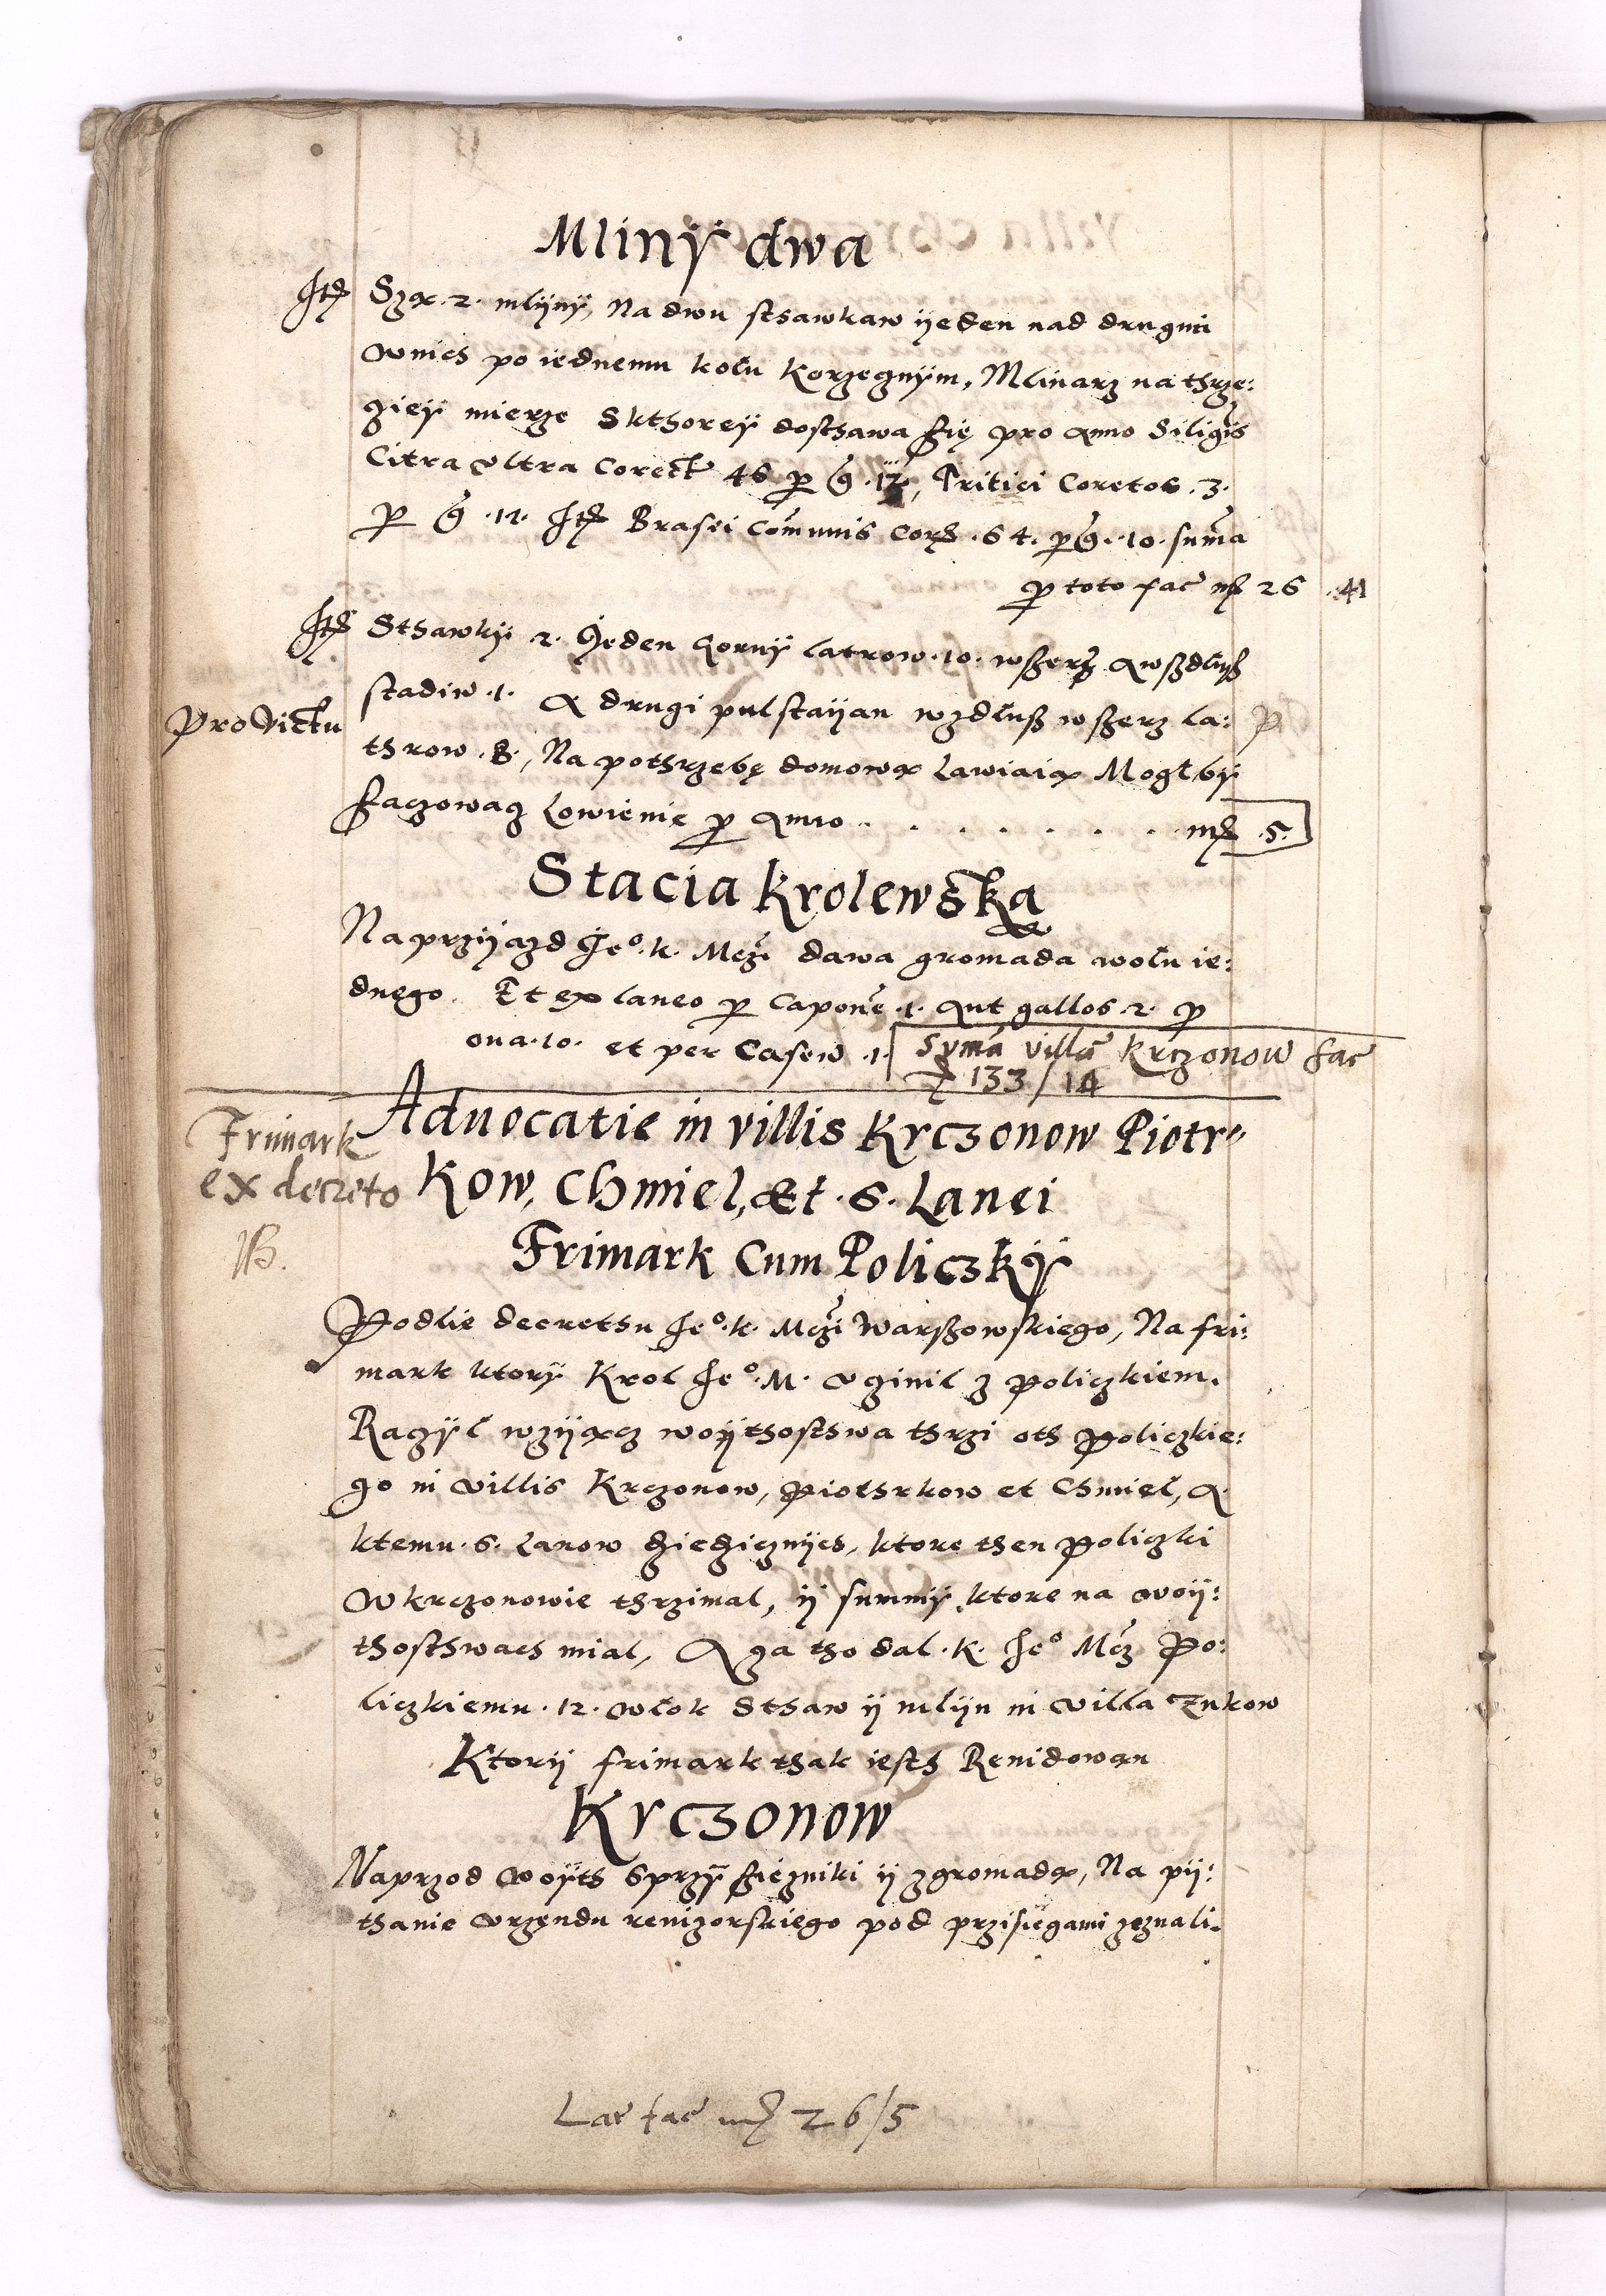 Mliny dwa
Itẽ Szą .2. mlyny, Na dwu sthawkaw yeden nad drugim
Wnich po iednemu kołu korzecznym, Mlinarz na thrze:
ciey mierze Skthorey dosthawa się pro Anno Siliginis
Citra Vltra Coretos 46 per g 12, Tritici Coretos .3.
per g .12. Itẽ Brasei Comunis Cor .64. per g. .10. suma
per toto fac mr 26 .41
Itẽ Sthawky 2. Jeden Gorny latrow .10. wszerz Awszdłusz
stadiw .1. A drugi pulstayan wzdłusz wszerz la:
Pro Victu
throw .8., Na pothrzebę domową Lawiaią Mogł by
szaczowacz Lowienie per Anno . . . . . . . mr .5.
Stacia Krolewska
Na przyyazd Jeº. k. Mczi dawa gromada wołu ie:
dnego. Et ex laneo per Capone .1. Aut gallos .2. per
oua .10. et per Caseu .1. Syma villa Krczonow fac
133/14
Frimark
ex decreto
NB.
Aduocatie in villis Krczonow Piotr=
Kow, Chmiel, Et .6. Lanei
Frimark Cum Policzky
Podlie decrethu Jeº. k. Mczi Warszowskiego, Na fri:
mark ktory Krol Jeº. M. Vczinil z Policzkiem.
Raczył wzyącz woythosthwa thrzi oth Policzkie:
go in Villis Krczonow, Piothrkow et Chmieł, A
ktemu .6. Lanow dziedzicznych, ktore then Policzki
Wkrczonowie thrzimal, y summy ktore na woy:
thosthwach mial, A za tho dal .K. Jeº Mcz Po:
liczkiemu .12. Włok Sthaw y mlyn in Villa Zukow
Ktory frimark thak iesth Reuidowan
Krczonow
Naprzod Woyth Sprzysziezniki y zgromadą, Na py:
thanie Vrzendu reuizorskiego pod przisiegami zeznali.
Lat fac mr 26/5